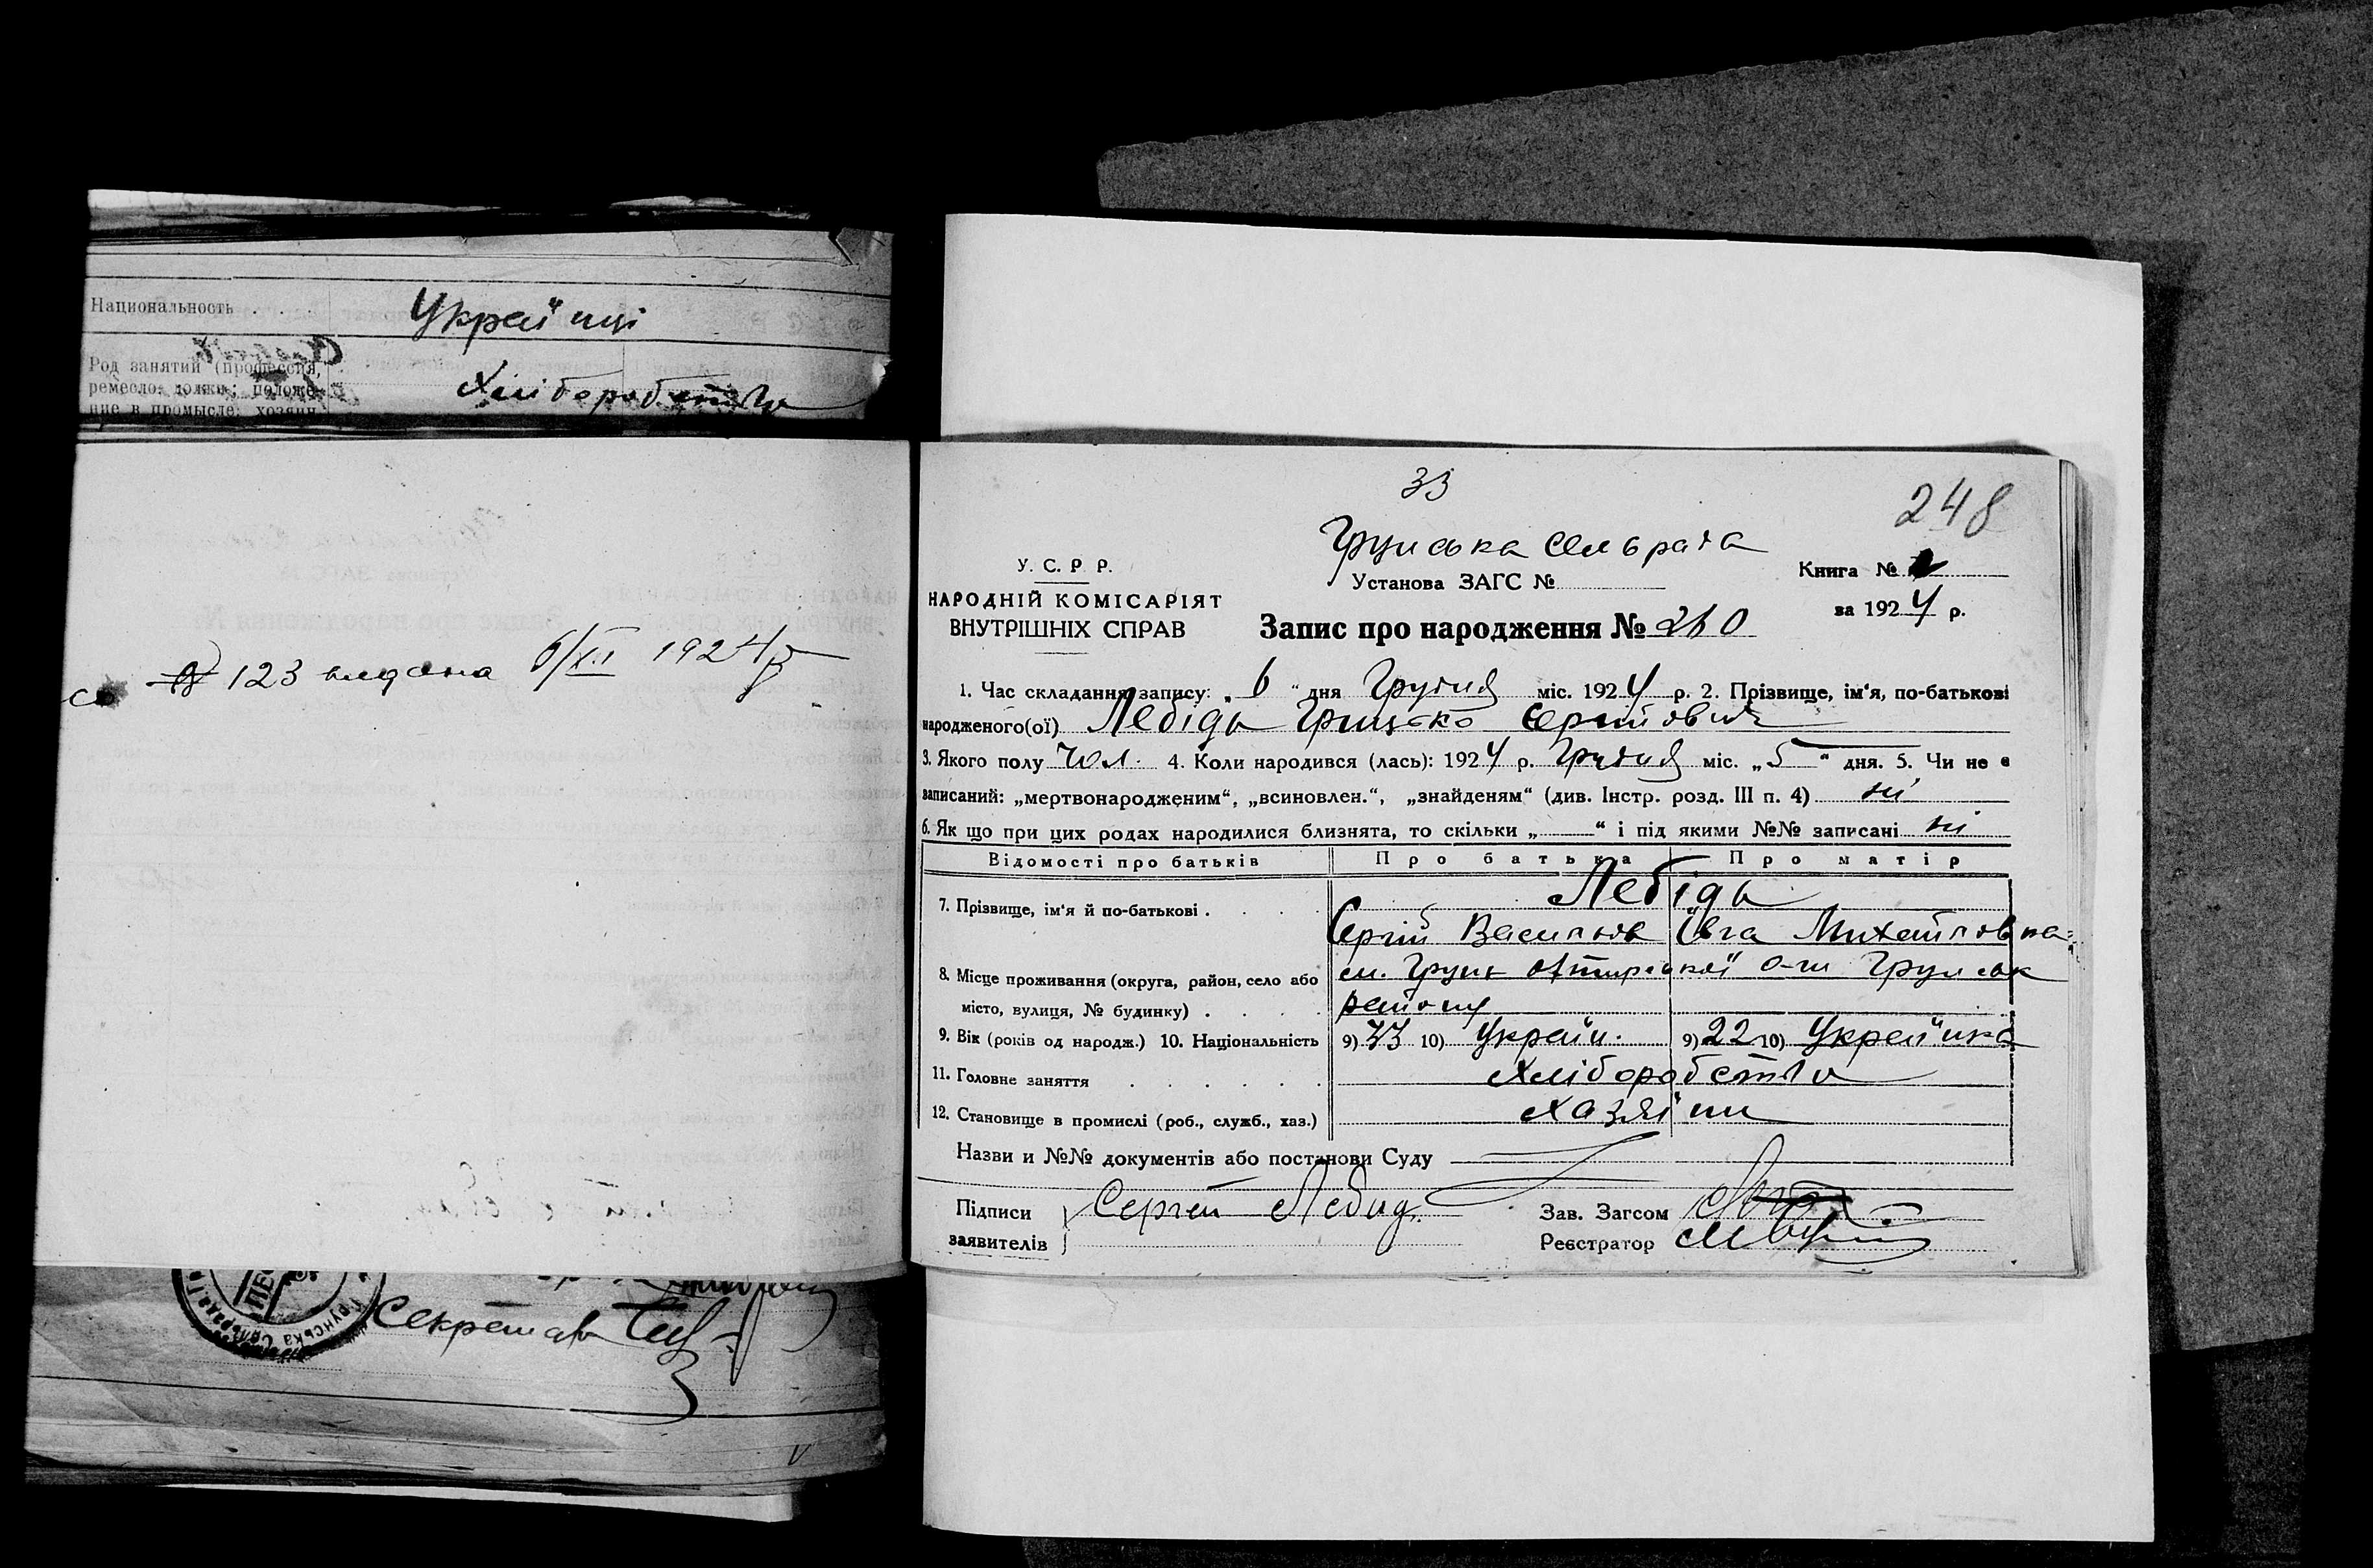 Национальность . . .
Українці
Род занятий (профессия,
ремесло, должн; положе-
ние в промысле: хозяин,
Хліборобство
№ 123 видана 6/XII 1924 р
Грунська Сельрада
Секретар
33
248
Грунська сельрада
У. С. Р. Р.
Установа ЗАГС №
Книга №
НАРОДНІЙ КОМІСАРІЯТ
ВНУТРІШНІХ СПРАВ
Запис про народження № 260
за 1924 р.
1. Час складання запису: „6“ дня Грудня міс. 1924 р. 2. Прізвище, ім‘я, по-батькові
народженого(ої) Лебідь Грицько Сергійович
3. Якого полу чол. 4. Коли народився (лась): 1924 р. Грудня міс. „5“ дня. 5. Чи не є
записаний: „мертвонародженим“, „всиновлен.“, „знайденям“ (див. Інстр. розд. III п. 4) ні
6. Як що при цих родах народилися близнята, то скільки „——“ і під якими №№ записані ні
Відомості про батьків Про батька Про матір
Лебідь
7. Прізвище, ім‘я й по-батькові . . . .
Сергій Васильов Євга Михайловна
8. Місце проживання (округа, район, село або
м. Грунь Охтирської о-ги Грунськ
місто, вулиця, № будинку) . . . .
району
9. Вік (років од народж.) 10. Національність 9) 33 10) Україн. 9) 22 10) Українка
11. Головне заняття . . . . . . Хліборобство
12. Становище в промислі (роб., служб., хаз.) Хазяїни
Назви и №№ документів або постанови Суду
Підписи
заявителів
Сергей Лебид
Зав. Загсом
Реєстратор